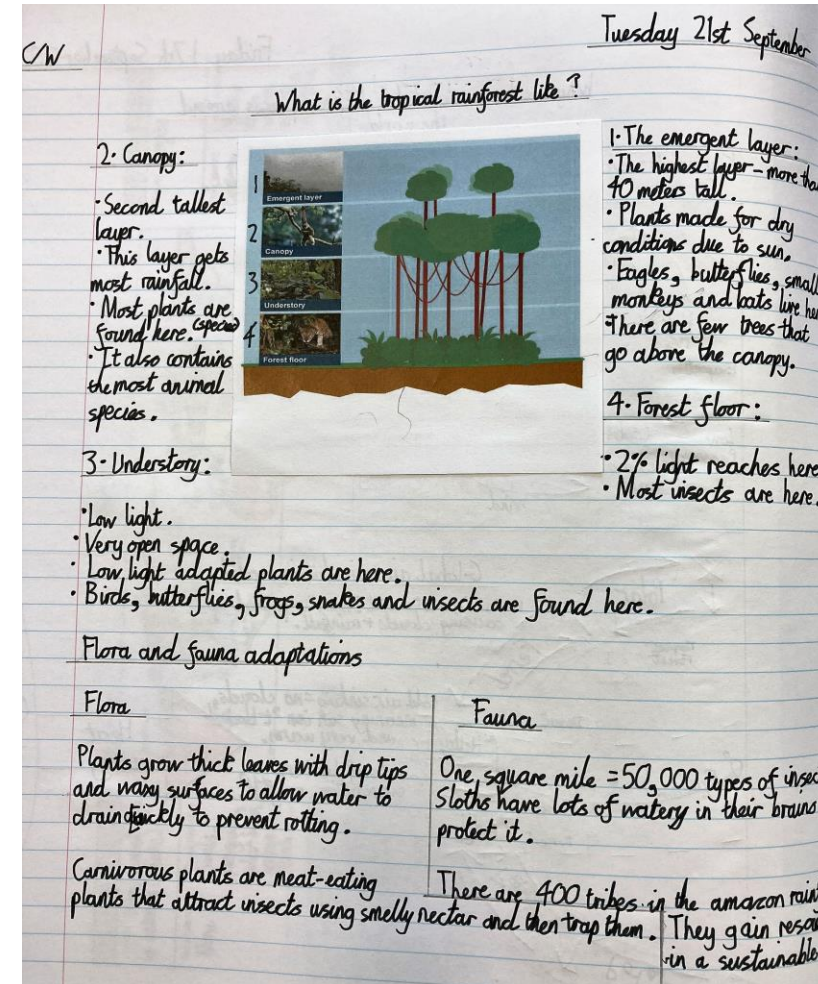 C/W
Tuesday 21st September
What is the tropical rainforest like?
2. Canopy:
· Second tallest
layer.
· This layer gets
most rainfall.
· Most plants are
found here. (species)
· It also contains
the most animal
species.
1
Emergent layer
2
Canopy
3
Understory
4
Forest floor
1. The emergent layer:
· The highest layer - more than
40 meters tall.
· Plants made for dry
conditions due to sun.
· Eagles, butterflies, small
monkeys and bats live he
· There are few trees that
go above the canopy.
4. Forest floor:
· 2% light reaches here
· Most insects are here.
3. Understory:
· Low light.
· Very open space.
· Low light adapted plants are here.
· Birds, butterflies, frogs, snakes and insects are found here.
Flora and fauna adaptations
Flora
Plants grow thick leaves with drip tips
and waxy surfaces to allow water to
drain quickly to prevent rotting.
Carnivorous plants are meat-eating
plants that attract insects using smelly nectar and then trap them.
Fauna
One square mile = 50,000 types of insec
Sloths have lots of watery in their brains
protect it.
There are 400 tribes in the amazon rain
They gain resou
in a sustainable